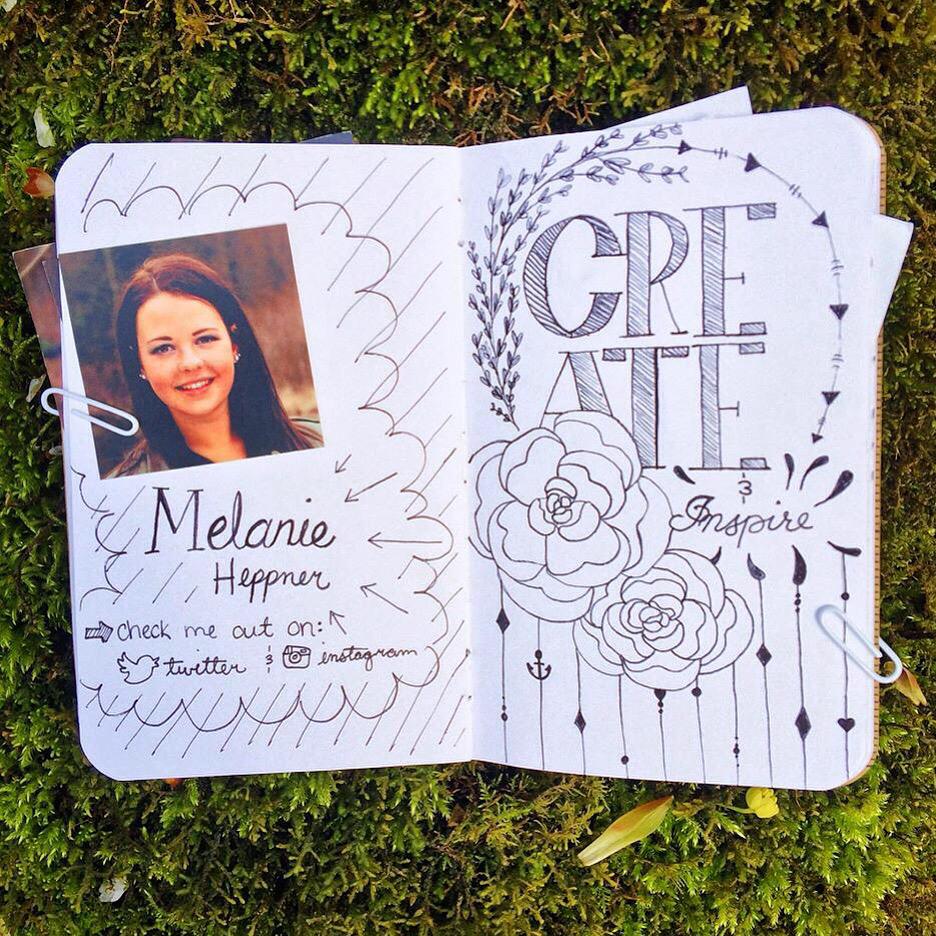 Melanie
Heppner
check me out on:
twitter & instagram
CRE
ATE
&
Inspire